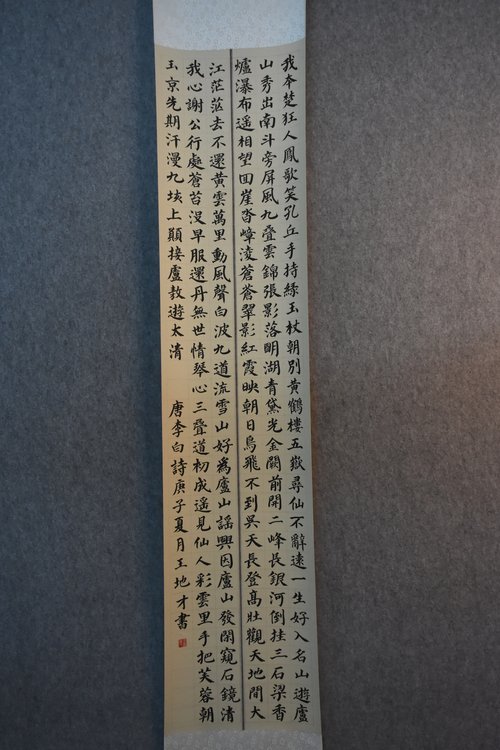 我本楚狂人鳳歌笑孔丘手持綠玉杖朝別黃鶴樓五嶽尋仙不辭遠一生好入名山遊廬
山秀出南斗旁屏風九叠雲錦張影落明湖青黛光金闕前開二峰長銀河倒挂三石梁香
爐瀑布遥相望回崖沓嶂淩蒼蒼翠影紅霞映朝日鳥飛不到吳天長登高壯觀天地間大
江茫茫去不還黃雲萬里動風聲白波九道流雪山好為廬山謠興因廬山發閑窺石鏡清
我心謝公行處蒼苔沒早服還丹無世情琴心三叠道初成遥見仙人彩雲里手把芙蓉朝
玉京先期汗漫九垓上願接盧敖遊太清 唐李白詩庚子夏月王地才書